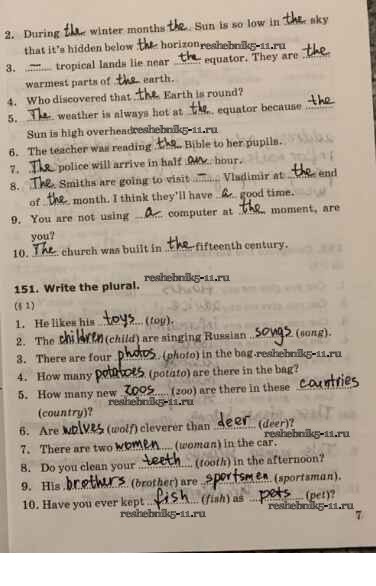 2. During the winter months the Sun is so low in the sky
that it's hidden below the horizon. reshebnik5-11.ru
3. — tropical lands lie near the equator. They are the
warmest parts of the earth.
4. Who discovered that the Earth is round?
5. The weather is always hot at the equator because the
Sun is high overhead. reshebnik5-11.ru
6. The teacher was reading the Bible to her pupils.
7. The police will arrive in half an hour.
8. The Smiths are going to visit — Vladimir at the end
of the month. I think they'll have a good time.
9. You are not using a computer at the moment, are
you?
10. The church was built in the fifteenth century.
reshebnik5-11.ru
151. Write the plural.
(§ 1)
1. He likes his toys (toy).
2. The children (child) are singing Russian songs (song).
3. There are four photos (photo) in the bag. reshebnik5-11.ru
4. How many potatoes (potato) are there in the bag?
5. How many new zoos (zoo) are there in these countries
reshebnik5-11.ru
(country)?
6. Are wolves (wolf) cleverer than deer (deer)?
reshebnik5-11.ru
7. There are two women (woman) in the car.
8. Do you clean your teeth (tooth) in the afternoon?
9. His brothers (brother) are sportsmen (sportsman).
10. Have you ever kept fish (fish) as pets (pet)?
reshebnik5-11.ru reshebnik5-11.ru
7